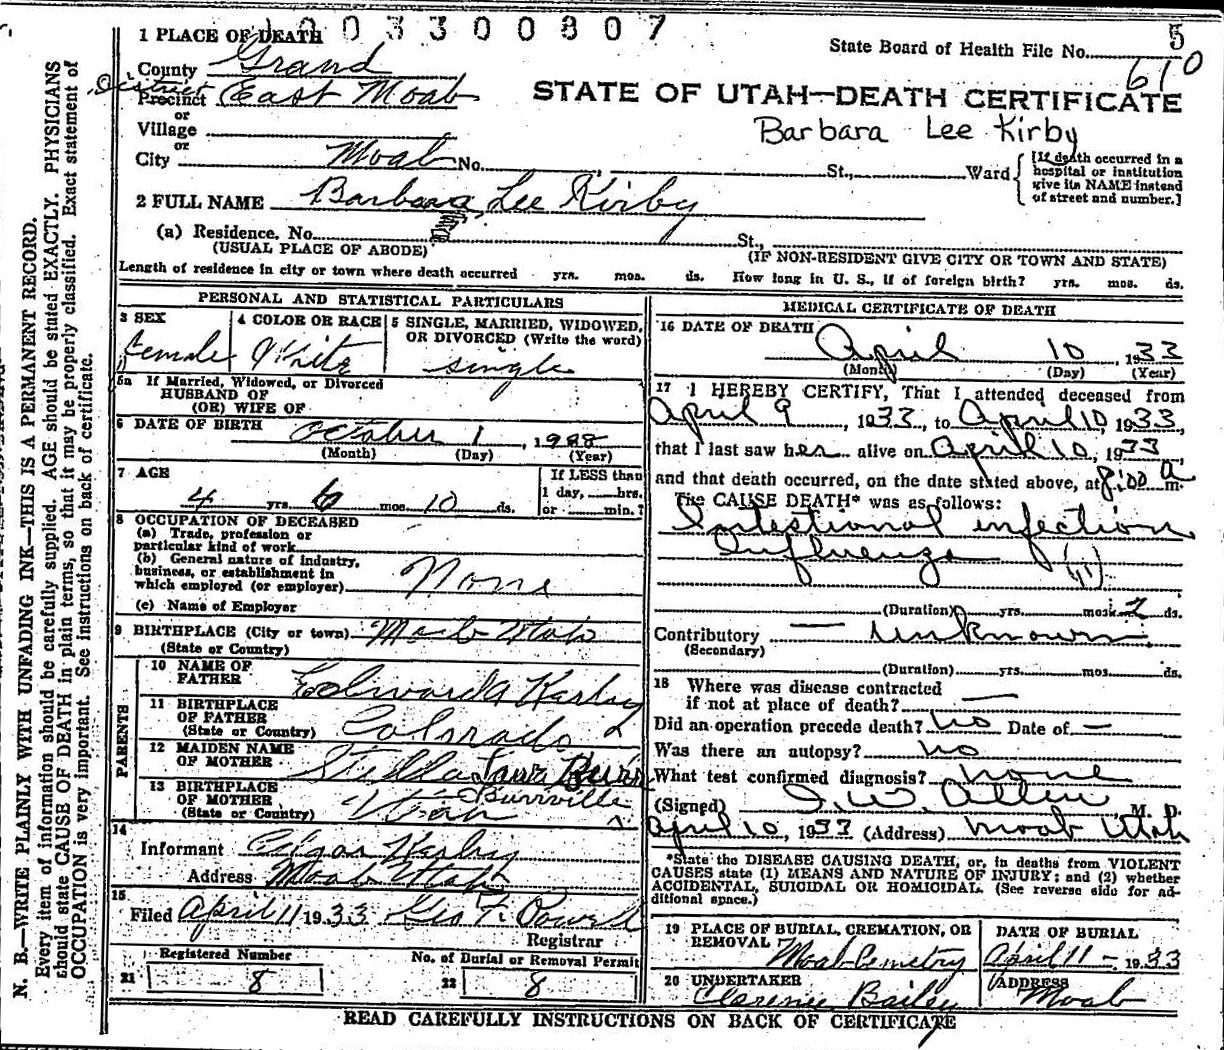 1 PLACE OF DEATH 0 0 3 3 0 0 8 0 7
State Board of Health File No. 5
610
County Grand
District
Precinct East Moab
or
Village
or
City Moab No. St., Ward
[If death occurred in a hospital or institution give its NAME instead of street and number.]
STATE OF UTAH—DEATH CERTIFICATE
Barbara Lee Kirby
2 FULL NAME Barbara Lee Kirby
(a) Residence. No. St.,
(USUAL PLACE OF ABODE) (IF NON-RESIDENT GIVE CITY OR TOWN AND STATE)
Length of residence in city or town where death occurred yrs. mos. ds. How long in U. S., if of foreign birth? yrs. mos. ds.
PERSONAL AND STATISTICAL PARTICULARS
3 SEX
Female
4 COLOR OR RACE
White
5 SINGLE, MARRIED, WIDOWED,
OR DIVORCED (Write the word)
single
5a If Married, Widowed, or Divorced
HUSBAND OF
(OR) WIFE OF
6 DATE OF BIRTH October 1, 1928
(Month) (Day) (Year)
7 AGE
4 yrs. 6 mos. 10 ds.
If LESS than
1 day, hrs.
or min.?
8 OCCUPATION OF DECEASED
(a) Trade, profession or
particular kind of work
(b) General nature of industry,
business, or establishment in
which employed (or employer) None
(c) Name of Employer
9 BIRTHPLACE (City or town) Moab Utah
(State or Country)
PARENTS
10 NAME OF
FATHER Edward Kirby
11 BIRTHPLACE
OF FATHER
(State or Country) Colorado
12 MAIDEN NAME
OF MOTHER Stella Laura Burr
13 BIRTHPLACE
OF MOTHER Burrville
(State or Country) Utah
14
Informant Edgar Kirby
Address Moab Utah
15
Filed April 11 1933 Geo F. Powell
Registrar
Registered Number
21 8
No. of Burial or Removal Permit
22 8
MEDICAL CERTIFICATE OF DEATH
16 DATE OF DEATH
April 10, 1933
(Month) (Day) (Year)
17 I HEREBY CERTIFY, That I attended deceased from
April 9, 1933, to April 10, 1933,
that I last saw her alive on April 10, 1933
and that death occurred, on the date stated above, at 8:00 a m.
The CAUSE DEATH* was as follows:
Intestional infection
Influenza (11)
(Duration) yrs. mos. 2 ds.
Contributory — unknown
(Secondary)
(Duration) yrs. mos. ds.
18 Where was disease contracted
if not at place of death? —
Did an operation precede death? no Date of —
Was there an autopsy? no
What test confirmed diagnosis? none
(Signed) I. W. Allen M. D.
April 10, 1933 (Address) Moab Utah
*State the DISEASE CAUSING DEATH, or, in deaths from VIOLENT
CAUSES state (1) MEANS AND NATURE OF INJURY; and (2) whether
ACCIDENTAL, SUICIDAL OR HOMICIDAL. (See reverse side for ad-
ditional space.)
19 PLACE OF BURIAL, CREMATION, OR
REMOVAL Moab Cemetry
DATE OF BURIAL
April 11 — 1933
20 UNDERTAKER
Clarence Bailey
ADDRESS
Moab
READ CAREFULLY INSTRUCTIONS ON BACK OF CERTIFICATE
N. B.—WRITE PLAINLY WITH UNFADING INK—THIS IS A PERMANENT RECORD.
Every item of information should be carefully supplied. AGE should be stated EXACTLY. PHYSICIANS
should state CAUSE OF DEATH in plain terms, so that it may be properly classified. Exact statement of
OCCUPATION is very important. See instructions on back of certificate.